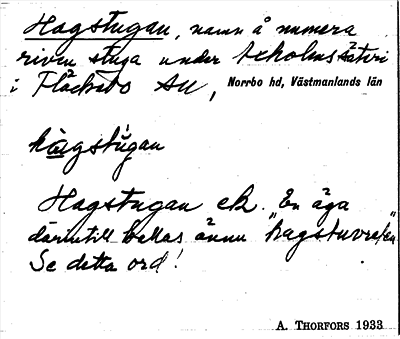 Hagstugan, namn å numera
riven stuga under Ekolns säteri
i Fläckebo sn, Norrbo hd, Västmanlands län
hàgstu̇gan
Hagstugan ek. En äga
därintill kallas ännu "hagstuvreten"
Se detta ord!
A. THORFORS 1933